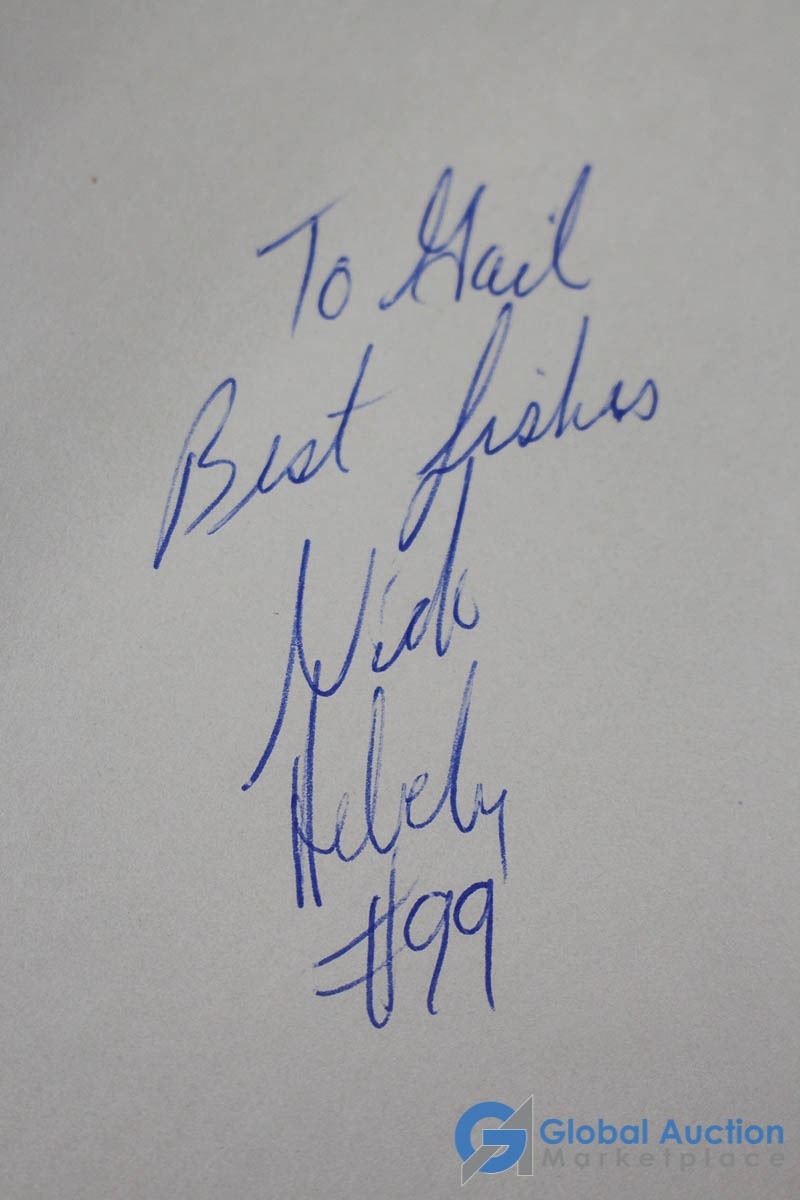 To Gail
Best fishes
Nick
#99
Global Auction
Marketplace